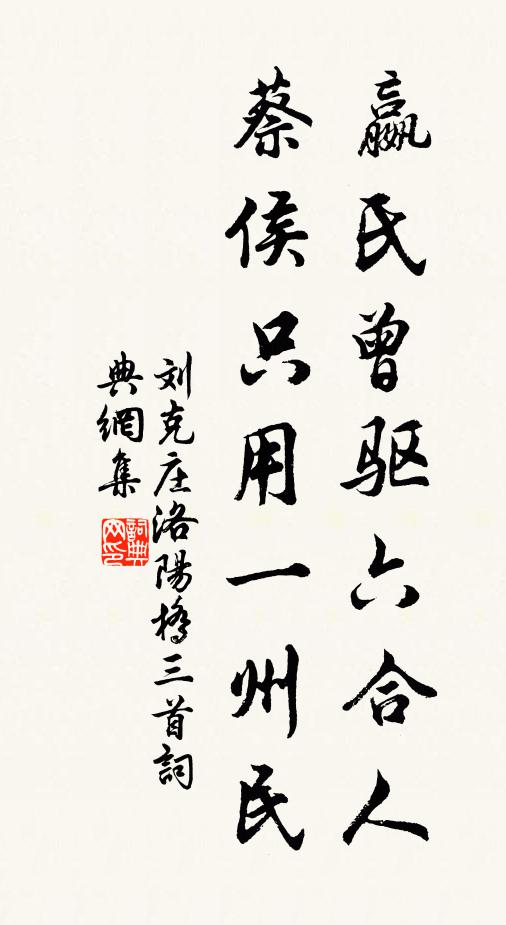 嬴氏曾驱六合人
蔡侯只用一州民
刘克庄洛陽橋三首詞
典網集
詞典网印